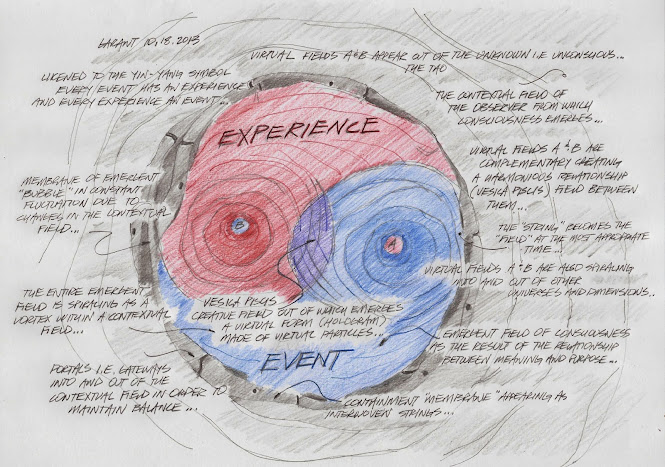 GARANT 10.18.2013
VIRTUAL FIELDS A & B APPEAR OUT OF THE UNKNOWN I.E. UNCONSCIOUS...
THE TAO
LIKENED TO THE YIN-YANG SYMBOL
EVERY EVENT HAS AN EXPERIENCE
AND EVERY EXPERIENCE AN EVENT...
THE CONTEXTUAL FIELD OF
THE OBSERVER FROM WHICH
CONSCIOUSNESS EMERGES...
EXPERIENCE
VIRTUAL FIELDS A & B ARE
COMPLEMENTARY CREATING
A HARMONIOUS RELATIONSHIP
(VESICA PISCIS) FIELD BETWEEN
THEM...
MEMBRANE OF EMERGENT
"BUBBLE" IN CONSTANT
FLUCTUATION DUE TO
CHANGES IN THE CONTEXTUAL
FIELD...
B
A
THE "STRING" BECOMES THE
"FIELD" AT THE MOST APPROPRIATE
TIME...
VIRTUAL FIELDS A & B ARE ALSO SPIRALING
INTO AND OUT OF OTHER
UNIVERSES AND DIMENSIONS...
THE ENTIRE EMERGENT
FIELD IS SPIRALING AS A
VORTEX WITHIN A CONTEXTUAL
FIELD...
VESICA PISCIS
CREATIVE FIELD OUT OF WHICH EMERGES
A VIRTUAL FORM (HOLOGRAM)
MADE OF VIRTUAL PARTICALS...
EMERGENT FIELD OF CONSIOUSNESS
AS THE RESULT OF THE RELATIONSHIP
BETWEEN MEANING AND PURPOSE...
EVENT
PORTALS I.E. GATEWAYS
INTO AND OUT OF THE
CONTEXTUAL FIELD IN ORDER TO
MAINTAIN BALANCE...
CONTAINMENT "MEMBRANE" APPEARING AS
INTERWOVEN STRINGS...